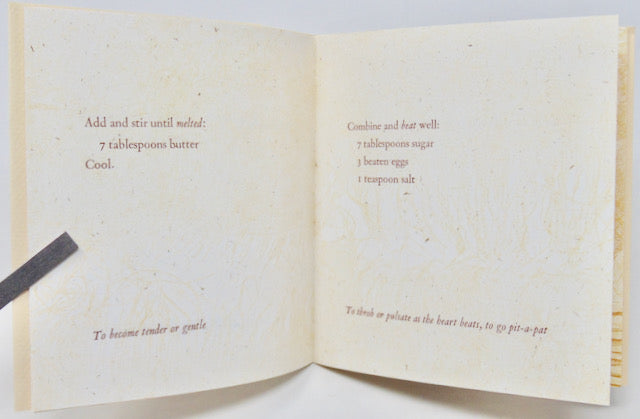 Add and stir until melted:
7 tablespoons butter
Cool.
To become tender or gentle
Combine and beat well:
7 tablespoons sugar
3 beaten eggs
1 teaspoon salt
To throb or pulsate as the heart beats, to go pit-a-pat